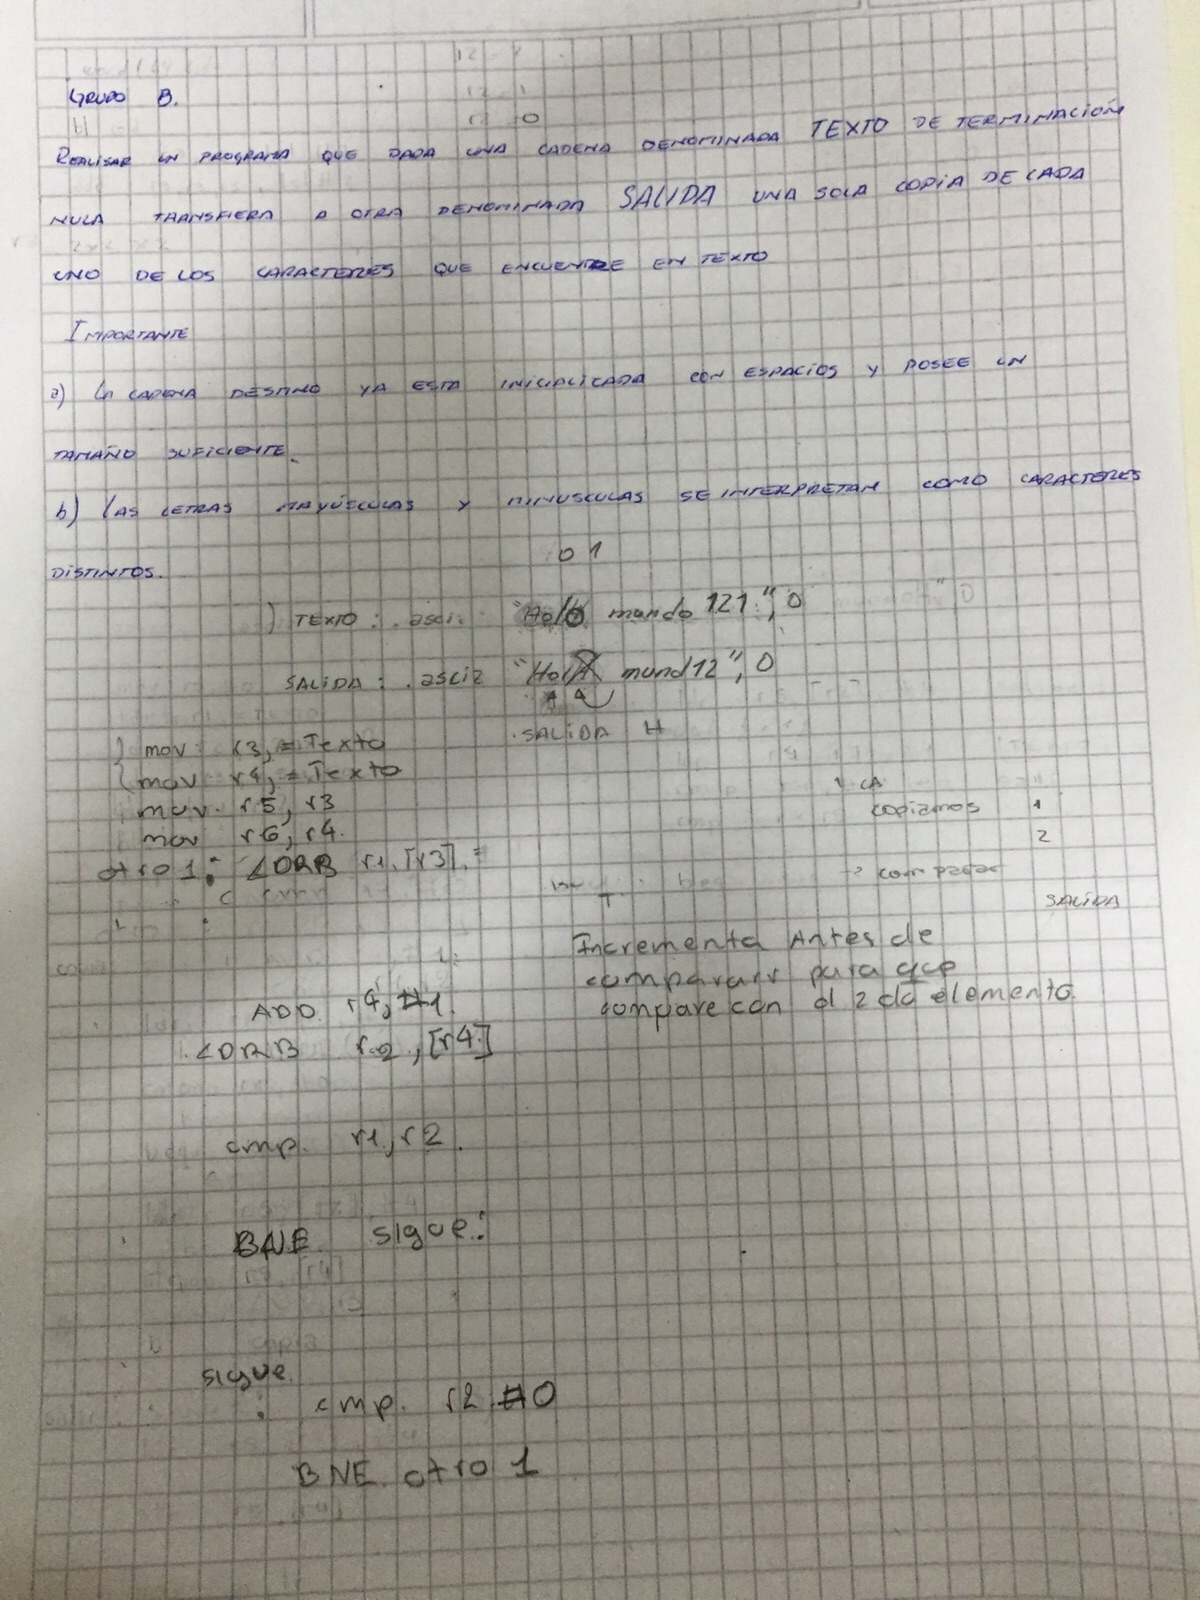 GRUPO B.
REALISAR UN PROGRAMA QUE DADA UNA CADENA DENOMINADA TEXTO DE TERMINACIÓN
NULA TRANSFIERA A OTRA DENOMINADA SALIDA UNA SOLA COPIA DE CADA
UNO DE LOS CARACTERES QUE ENCUENTRE EN TEXTO
IMPORTANTE
a) LA CADENA DESTINO YA ESTA INICIALICADA CON ESPACIOS Y POSEE UN
TAMAÑO SUFICIENTE.
b) LAS LETRAS MAYÚSCULAS Y MINUSCULAS SE INTERPRETAN COMO CARACTERES
DISTINTOS.
0 1
TEXTO: .asci. mundo 121.", 0
SALIDA: .asciz mund12", 0
.SALIDA H
mov r3, = Texto
mov r4, = Texto
mov. r5, r3
mov r6, r4.
copiamos 1
2
otro 1: LDRB r1, [r3].
comparar
SALIDA
Incrementa Antes de
compararr para que
compare con el 2do elemento.
ADD. r4, #1.
.LDRB r2, [r4]
cmp. r1, r2.
BNE sigue:
sigue.
: cmp. r2 #0
BNE. otro 1